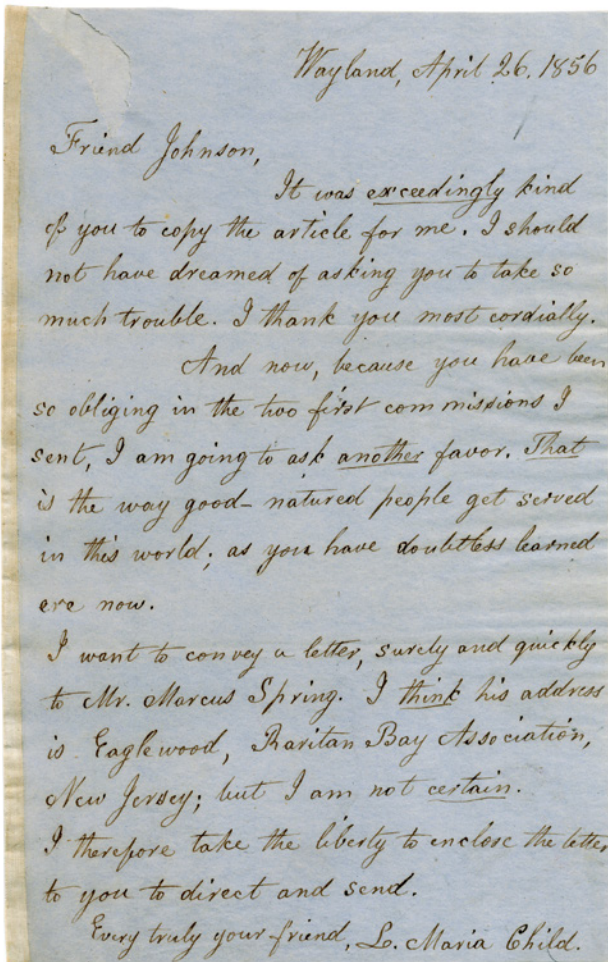 Wayland, April 26. 1856
Friend Johnson,
It was exceedingly kind
of you to copy the article for me. I should
not have dreamed of asking you to take so
much trouble. I thank you most cordially.
And now, because you have been
so obliging in the two first commissions I
sent, I am going to ask another favor. That
is the way good-natured people get served
in this world; as you have doubtless learned
ere now.
I want to convey a letter, surely and quickly
to Mr. Marcus Spring. I think his address
is Eaglewood, Raritan Bay Association,
New Jersey; but I am not certain.
I therefore take the liberty to enclose the letter
to you to direct and send.
Every truly your friend, L. Maria Child.